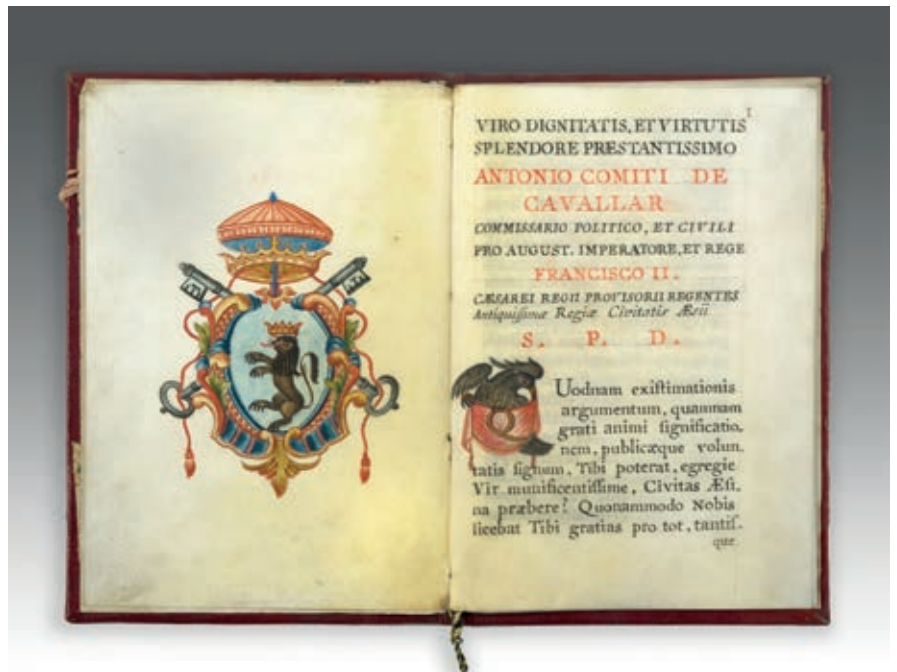 1
VIRO DIGNITATIS, ET VIRTUTIS
SPLENDORE PRESTANTISSIMO
ANTONIO COMITI DE
CAVALLAR
COMMISSARIO POLITICO, ET CIVILI
PRO AUGUST. IMPERATORE, ET REGE
FRANCISCO II.
CÆSAREI REGII PROVISORII REGENTES
Antiquiſſimæ Regiæ Civitatis Æsii
S. P. D.
QUodnam exiſtimationis
argumentum, quamnam
grati animi ſignificatio.
nem, publicæque volun
tatis ſignum, Tibi poterat, egregie
Vir munificentiſſime, Civitas Æſi.
na præbere? Quonammodo Nobis
licebat Tibi gratias pro tot, tantiſ.
que